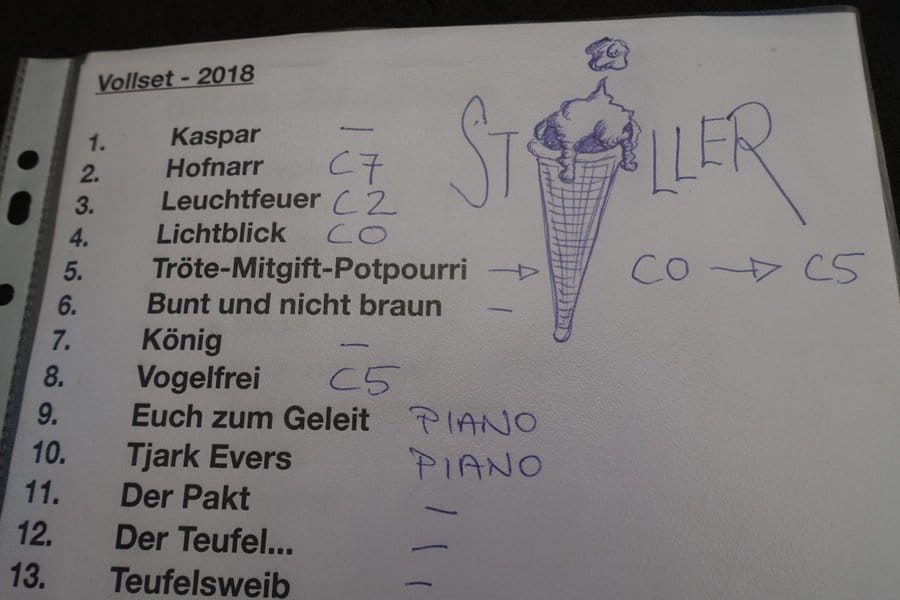 Vollset - 2018
STiLLER
1. Kaspar —
2. Hofnarr C7
3. Leuchtfeuer C2
4. Lichtblick C0
5. Tröte-Mitgift-Potpourri → C0 → C5
6. Bunt und nicht braun -
7. König —
8. Vogelfrei C5
9. Euch zum Geleit PIANO
10. Tjark Evers PIANO
11. Der Pakt —
12. Der Teufel... —
13. Teufelsweib —